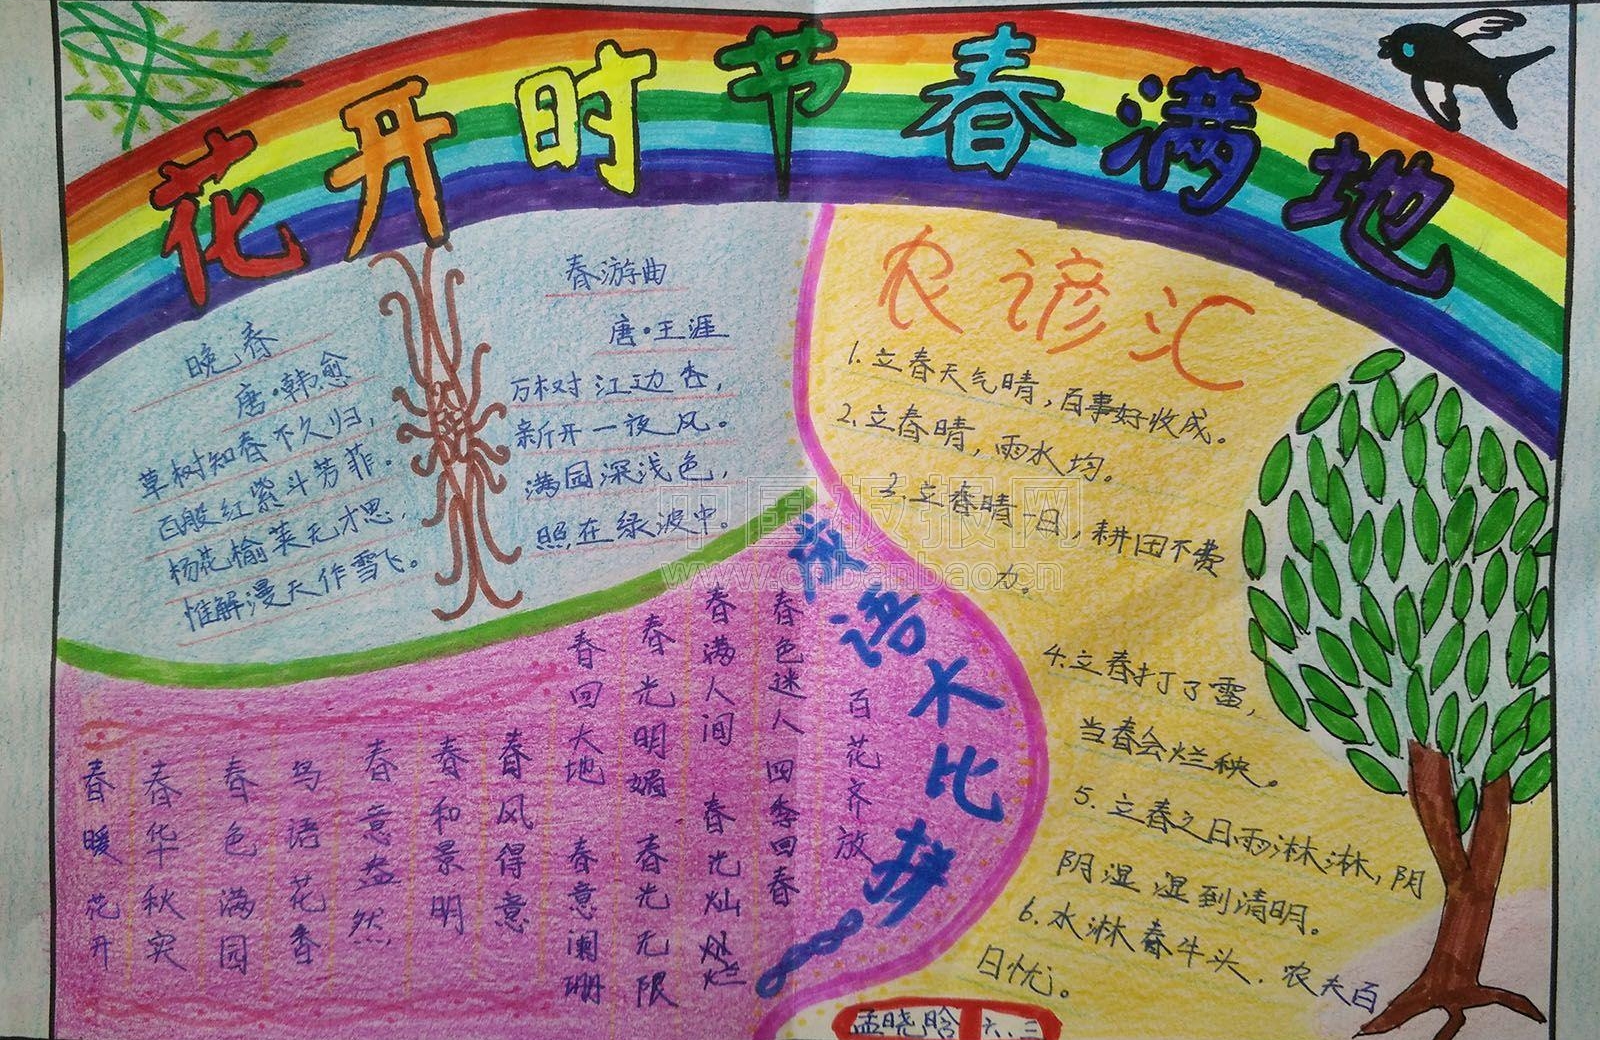 花开时节春满地
晚春
唐·韩愈
草树知春不久归，
百般红紫斗芳菲。
杨花榆荚无才思，
惟解漫天作雪飞。
春游曲
唐·王涯
万树江边杏，
新开一夜风。
满园深浅色，
照在绿波中。
农谚汇
1.立春天气晴，百事好收成。
2.立春晴，雨水均。
3.立春晴一日，耕田不费
力。
4.立春打了雷，
当春会烂秧。
5.立春之日雨淋淋，阴
阴湿湿到清明。
6.水淋春牛头，农夫百
日忧。
成语大比拼
百花齐放
春色迷人 四季回春
春满人间 春光灿烂
春光明媚 春光无限
春回大地 春意阑珊
春风得意
春和景明
春意盎然
鸟语花香
春色满园
春华秋实
春暖花开
孟晓晗 六、三
中国板报网
www.cnbanbao.cn